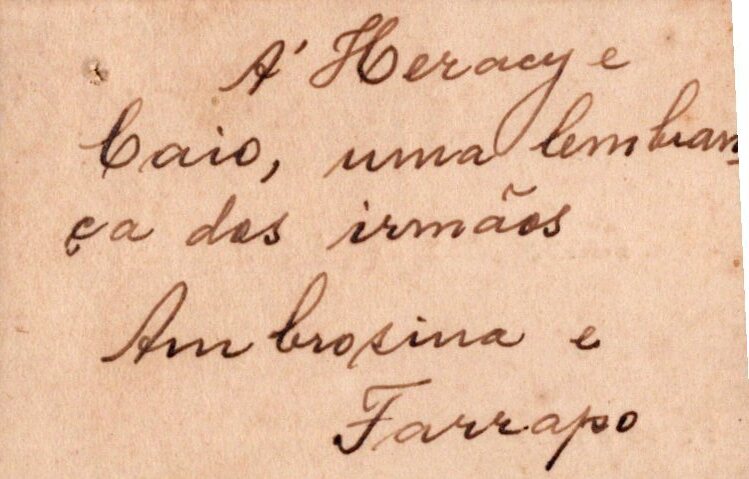 A' Heracy e
Caio, uma lembran-
ça dos irmãos
Ambrosina e
Farrapo